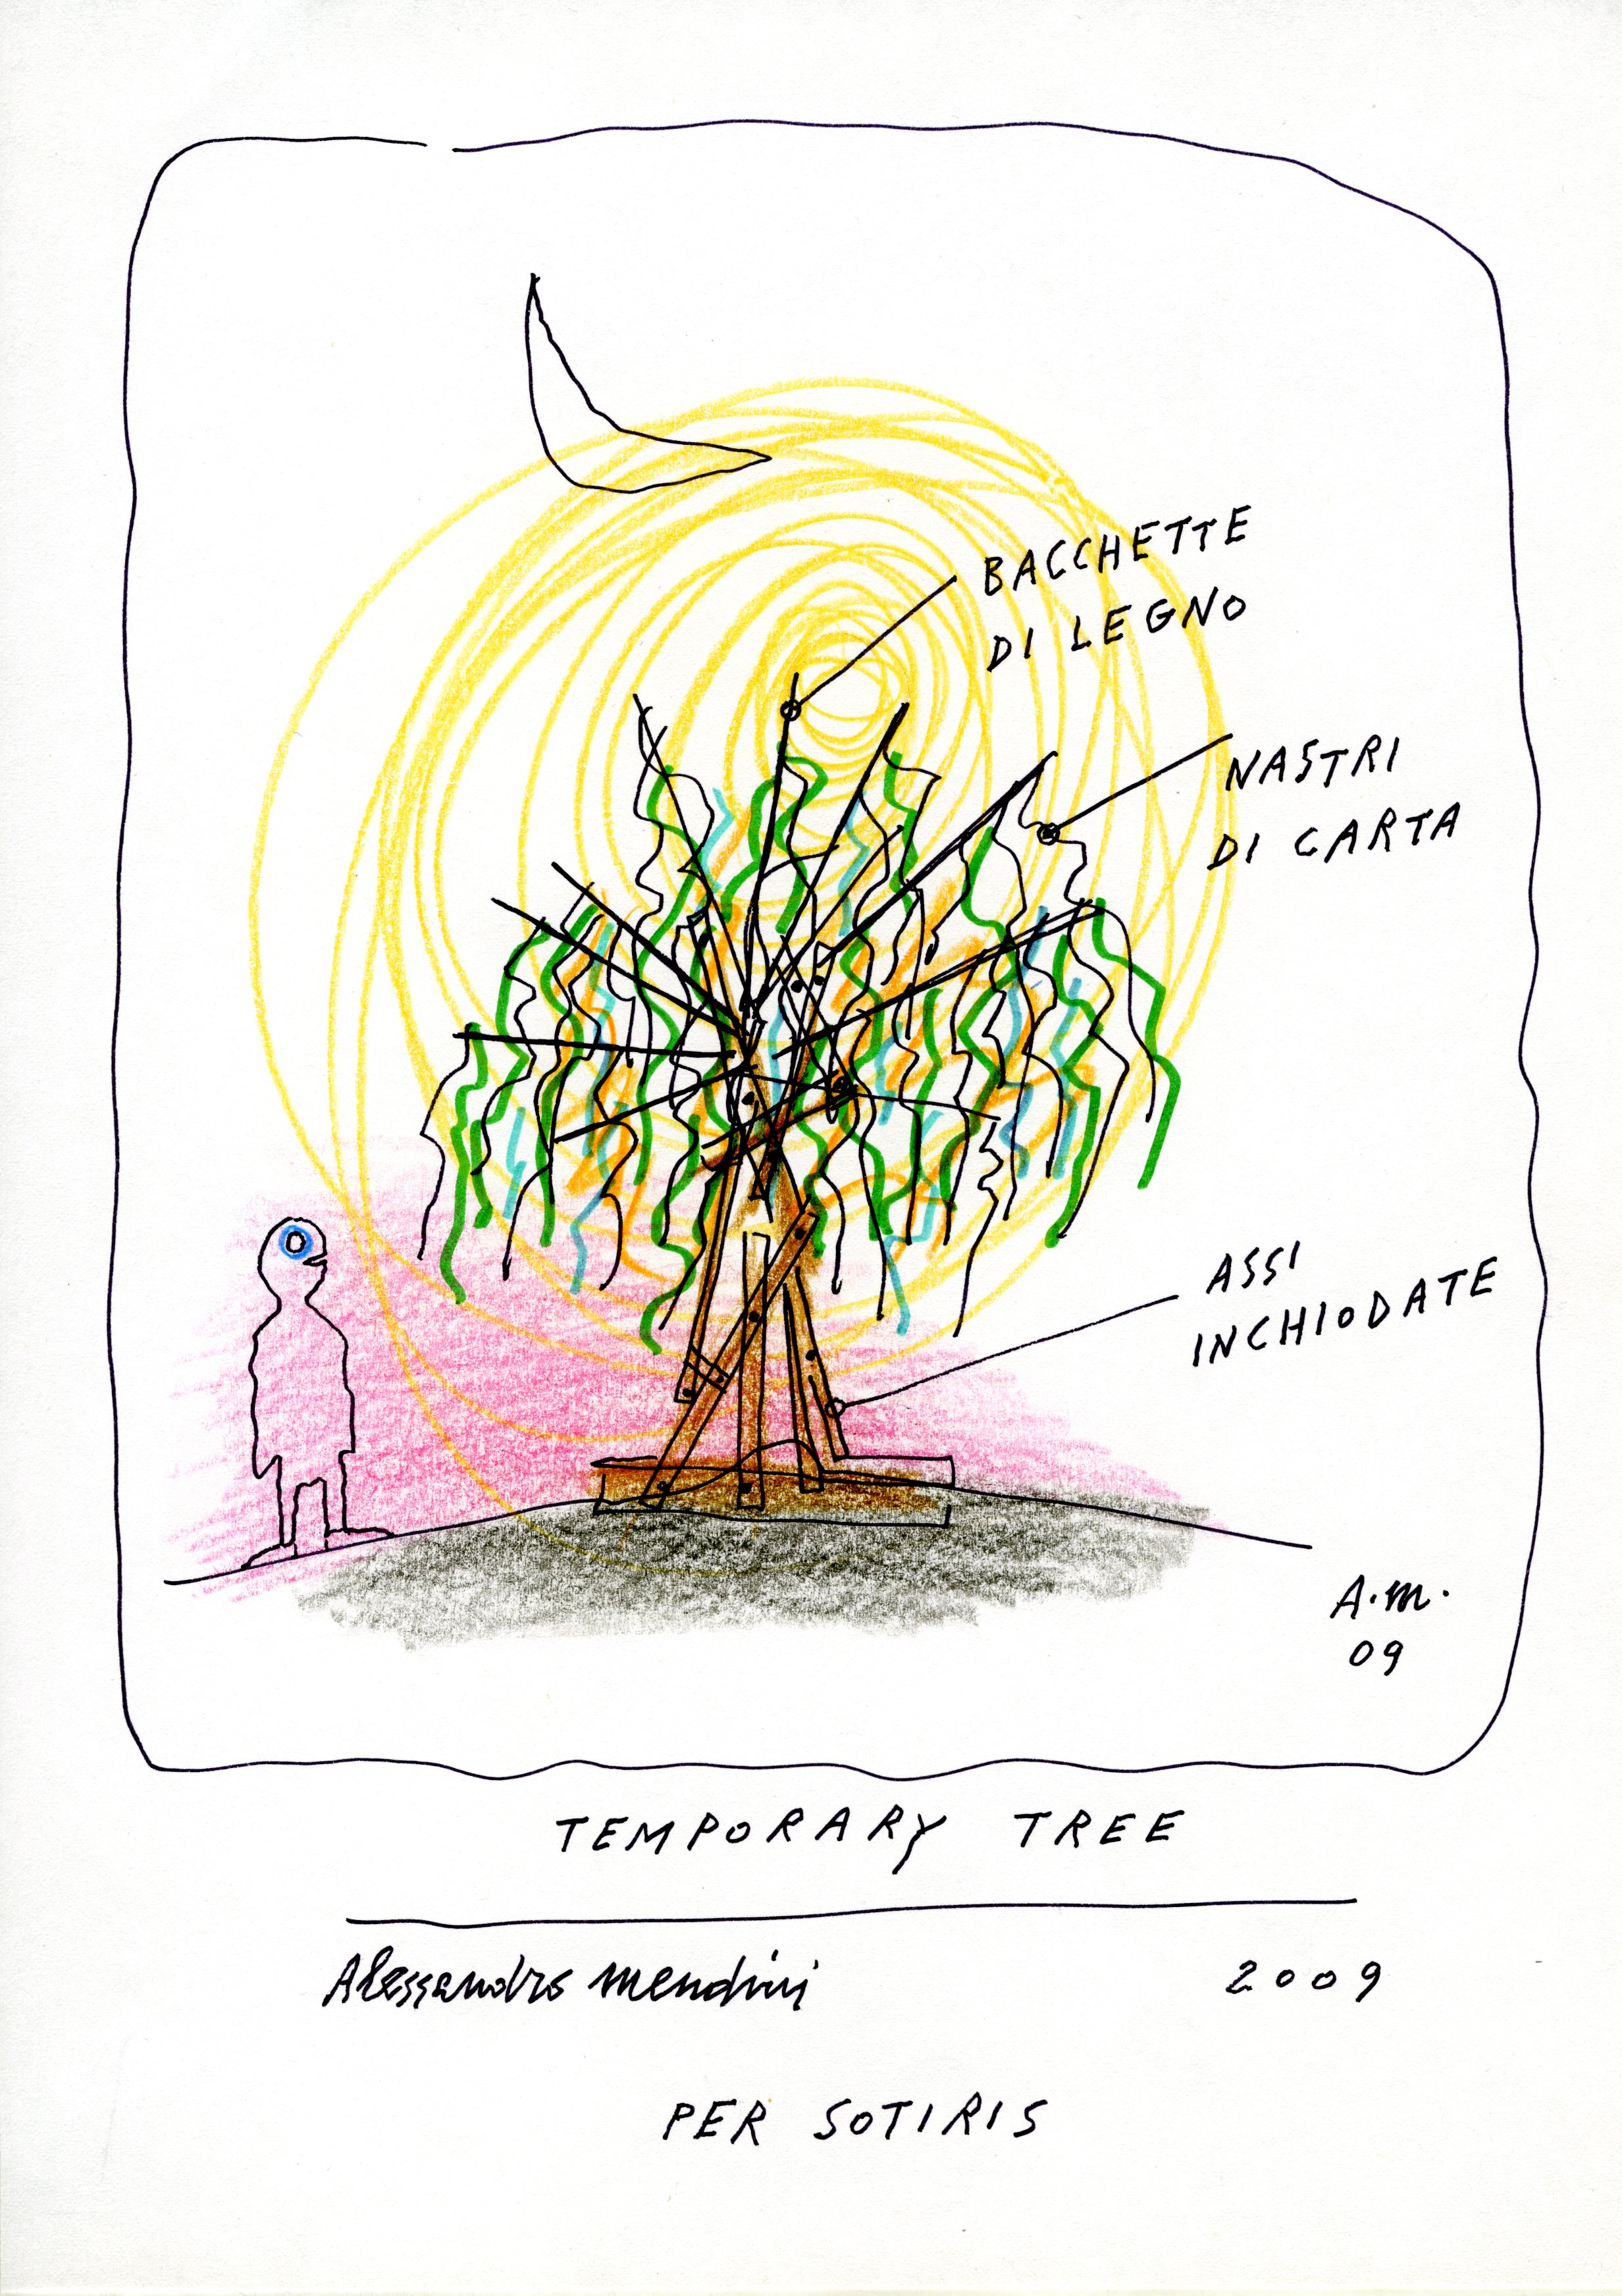 BACCHETTE
DI LEGNO
NASTRI
DI CARTA
ASSI
INCHIODATE
A.M.
09
TEMPORARY TREE
Alessandro Mendini 2009
PER SOTIRIS